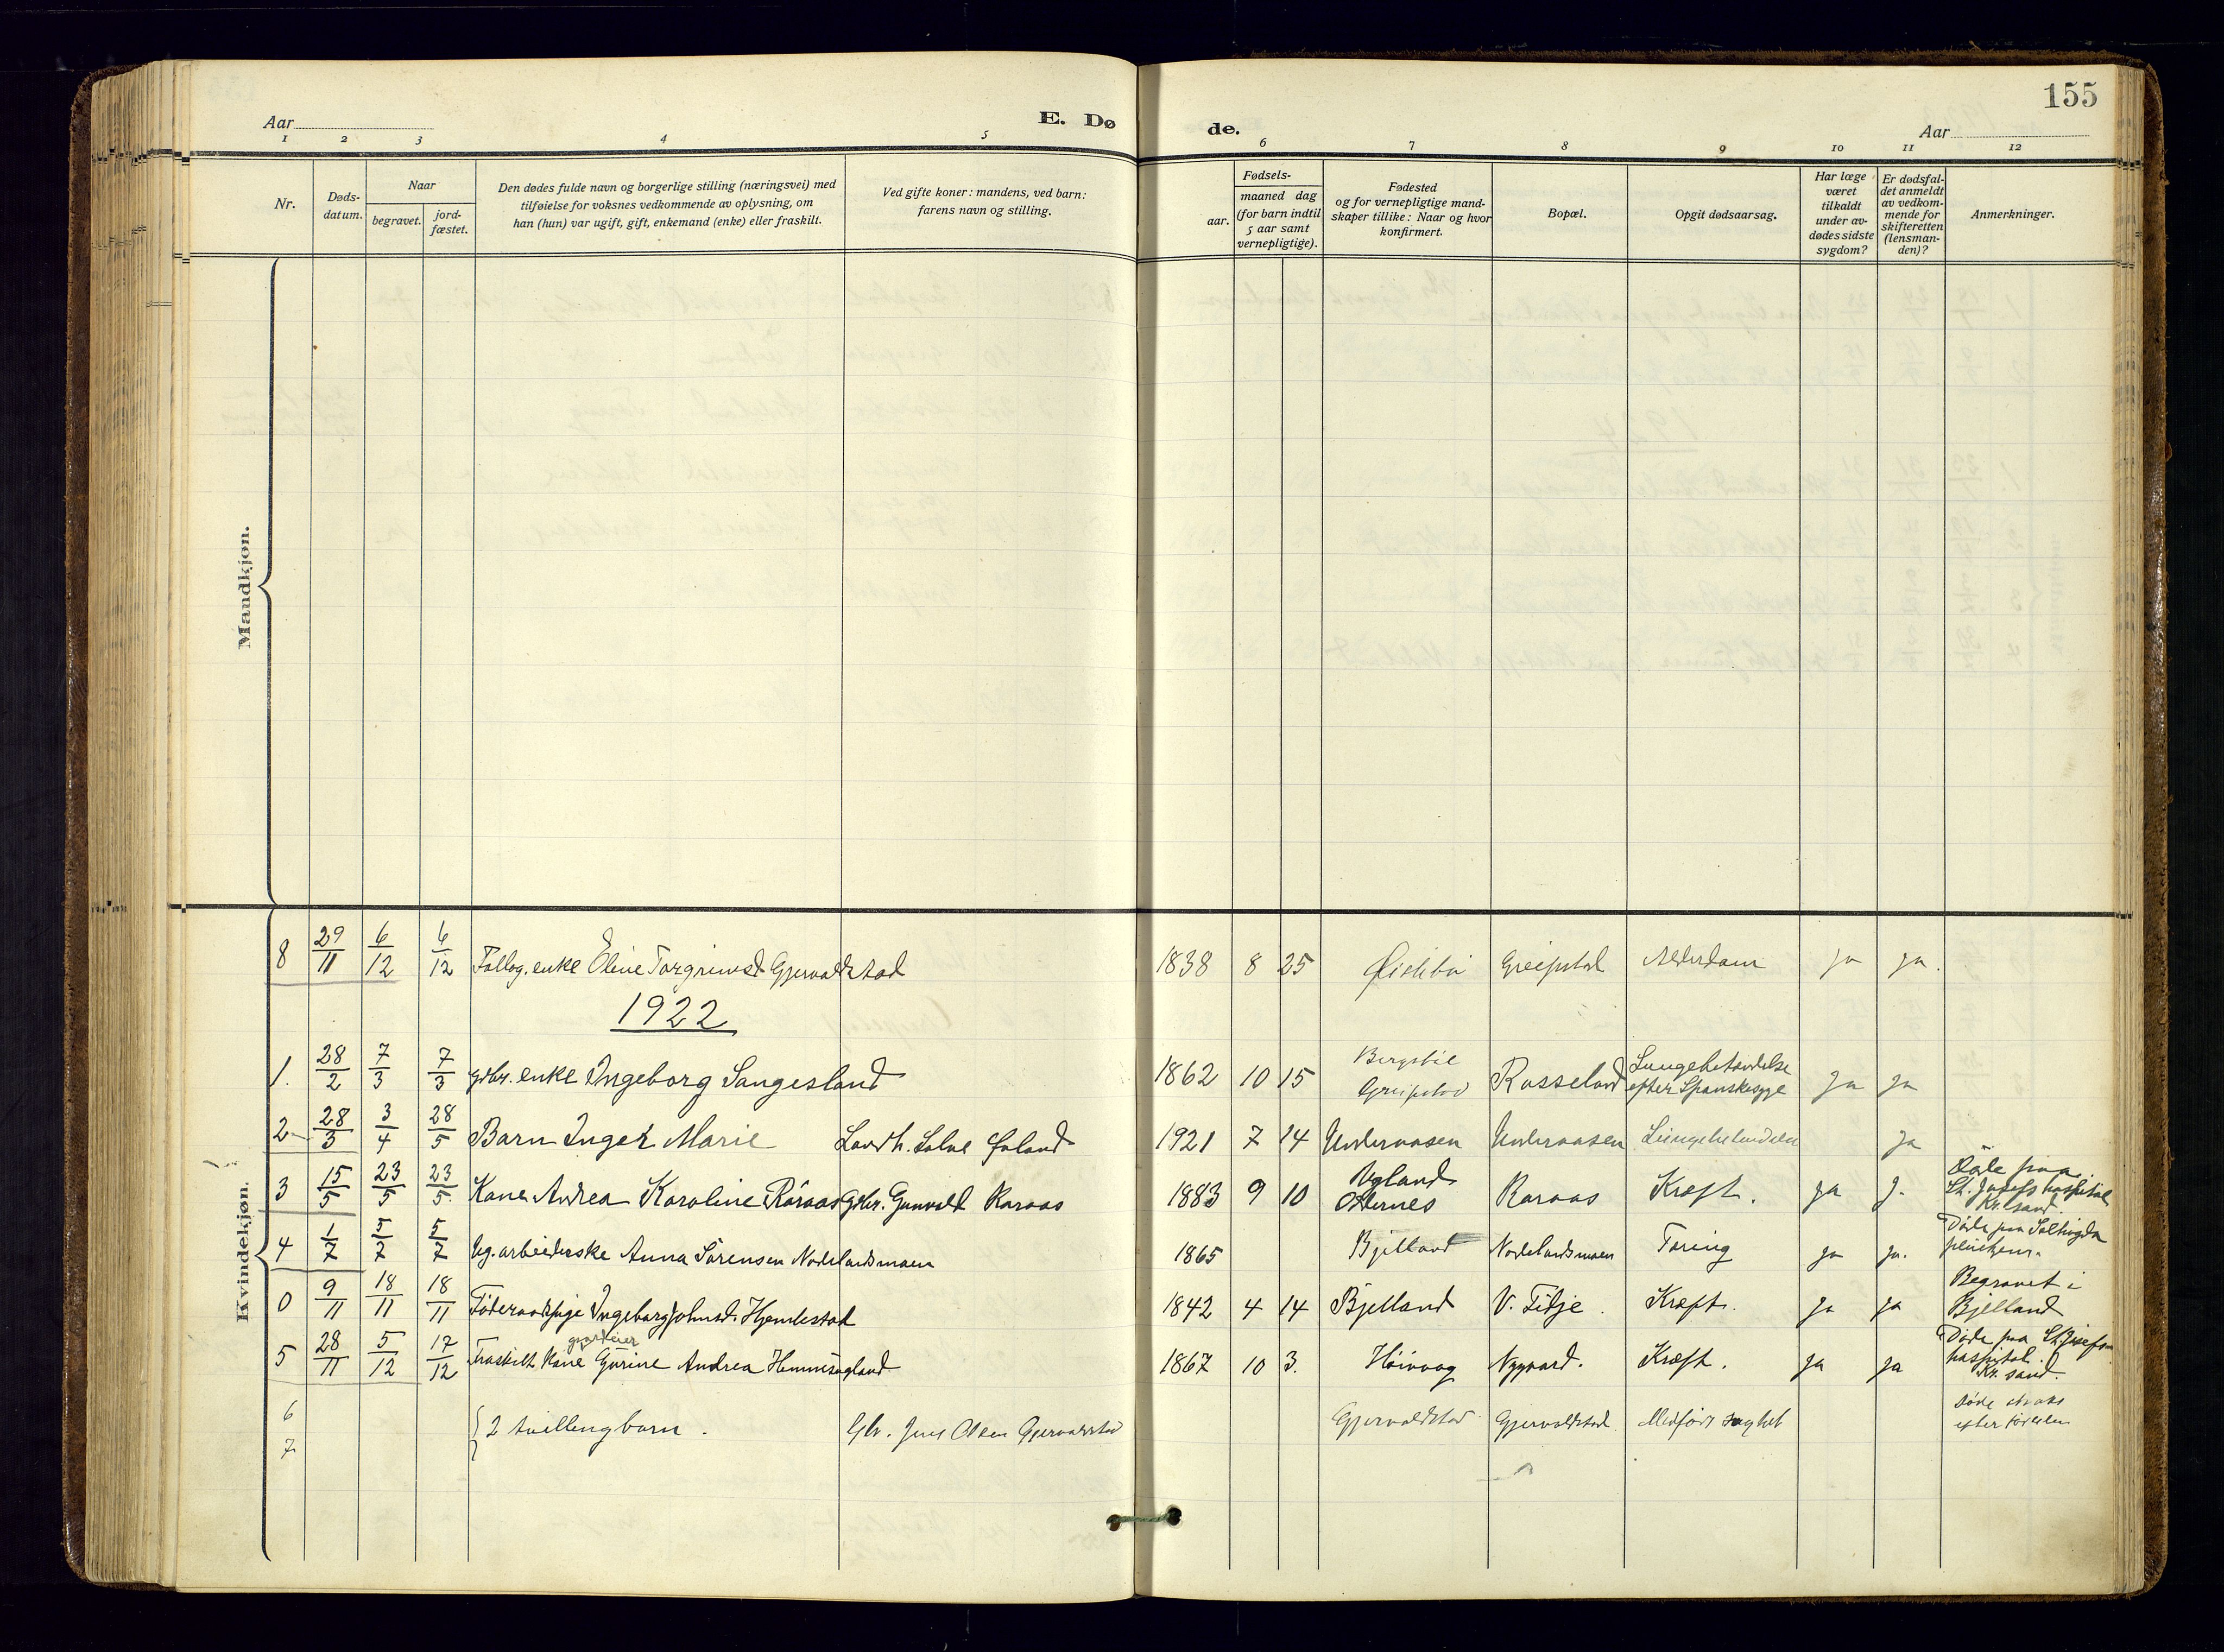 155
Aar
E. Dø
de.
Aar
1 2 3 4 5 6 7 8 9 10 11 12
Nr.
Døds-
datum.
Naar
begravet.
jord-
fæstet.
Den dødes fulde navn og borgerlige stilling (næringsvei) med
tilføielse for voksnes vedkommende av oplysning, om
han (hun) var ugift, gift, enkemand (enke) eller fraskilt.
Ved gifte koner: mandens, ved barn:
farens navn og stilling.
aar.
Fødsels-
maaned dag
(for barn indtil
5 aar samt
vernepligtige).
Fødested
og for vernepligtige mand-
skaper tillike: Naar og hvor
konfirmert.
Bopæl.
Opgit dødsaarsag.
Har læge
været
tilkaldt
under av-
dødes sidste
sygdom?
Er dødsfal-
det anmeldt
av vedkom-
mende for
skifteretten
(lensman-
den)?
Anmerkninger.
Mandkjøn.
Kvindekjøn.
8 29/11 6/12 6/12 enke Eline Torgrimsd. Gjervoldstad 1838 8 25 Greipstad Alderdom ja ja.
1922
1. 28/2 7/3 7/3 gdbr. enke Ingeborg Sangesland 1862 10 15 Greipstad Rosseland Lungebetændelse efter Spanskesyge ja ja
2 28/3 3/4 28/5 Barn Inger Marie Øvland 1921 7 14 Underaasen Underaasen Lungebetændelse ja
3 15/5 23/5 23/5. Kone Andrea Karoline Raraas Gdbr. Gunvald Raraas 1883 9 10 Øgland Raraas Kræft. ja j. Døde paa St. Josefs hospital Kr.sand.
4 1/7 5/7 5/7 Ug. arbeiderske Anna Sörensen Nodelandsmoen 1865 Bjelland Nodelandsmoen Tæring ja ja. Døde paa
0 9/11 18/11 18/11 Ingeborg Johnsd. Hjemlestad 1842 4 14 Bjelland V. Titje. Kræft. ja ja Begravet i Bjelland
5 28/11 5/12 17/12 Fraskilt Kone gaardeier Gurine Andrea 1867 10 3. Høivaag Nygaard. Kræft. ja ja Døde paa St. Josefs hospital. Kr. sand.
6
7 2 tvillingbarn. Gbr. Jens Olsen Gjervoldstad Gjervoldstad Gjervoldstad Medfødt svaghet Døde straks efter fødselen